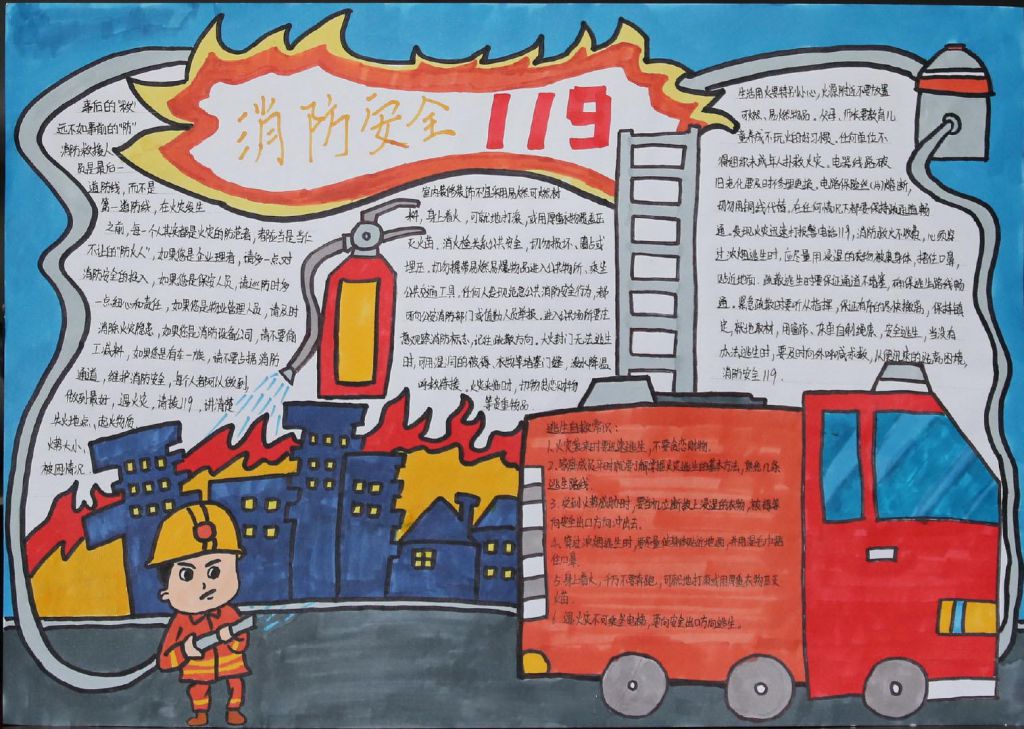 消防安全 119
事后的“救”
远不如事前的“防”
消防救援人
员是最后一
道防线，而不是
第一道防线，在火灾发生
之前，每一个人其实都是火灾的防范者，都应当是当仁
不让的“防火人”，如果您是企业理者，请多一点对
消防安全的投入，如果您是保安人员，请巡防时多
一点细心和责任，如果您是物业管理人员，请及时
消除火灾隐患，如果您是消防设备公司，请不要偷
工减料，如果您是有车一族，请不要占据消防
通道，维护消防安全，每个人都可以做到，
做到最好，遇火灾，请拨119，讲清楚
失火地点、起火物质
火势大小、
被困情况
室内装修装饰不宜采用易燃可燃材
料，身上着火，可就地打滚，或用厚重衣物覆盖压
灭火苗，消火栓关系公共安全，切勿损坏、圈占或
埋压，切勿携带易燃易爆物品进入公共场所、乘坐
公共交通工具，任何人发现危害公共消防安全行为，都
可向公安消防部门或值勤人员举报。进入公共场所要注
意观察消防标志，记住疏散方向，大火封门无法逃生
时，可用浸湿的被褥、衣物等堵塞门缝，泼水降温
呼救待援，火灾来临时，切勿贪恋财物
等贵重物品
生活用火要特别小心，火源附近不要放置
可燃、易燃物品，父母、师长要教育儿
童养成不玩火的好习惯、任何单位不
得组织未成年人扑救火灾、电器线路破
旧老化要及时修理更换、电路保险丝(片)熔断，
切勿用铜线代替，在任何情况下都要保持疏通道畅
通、发现火灾迅速打报警电话119，消防救火不收费，必须穿
过浓烟逃生时，应尽量用浸湿的衣物被裹身体，捂住口鼻，
贴近地面、疏散逃生时要保证通道不堵塞，确保逃生路线畅
通、紧急疏散时要听从指挥，保证有序的尽快撤离，保持镇
定，就地取材，用窗帘、床单自制绳索，安全逃生，当没有
办法逃生时，要及时向外呼喊求救，从便迅速的逃离困境，
消防安全119.
逃生自救常识：
1、火灾袭来时要迅速逃生，不要贪恋财物。
2、家庭成员平时就要了解掌握火灾逃生的基本方法，熟悉几条
逃生路线
3、受到火势威胁时，要当机立断披上浸湿的衣物，被褥等
向安全出口方向冲出去、
4、穿过浓烟逃生时，要尽量使身体贴近地面，并用湿毛巾捂
住口鼻
5、身上着火，千万不要奔跑，可就地打滚或用厚重衣物压灭
火苗
6、遇火灾不可乘坐电梯，要向安全出口方向逃生。